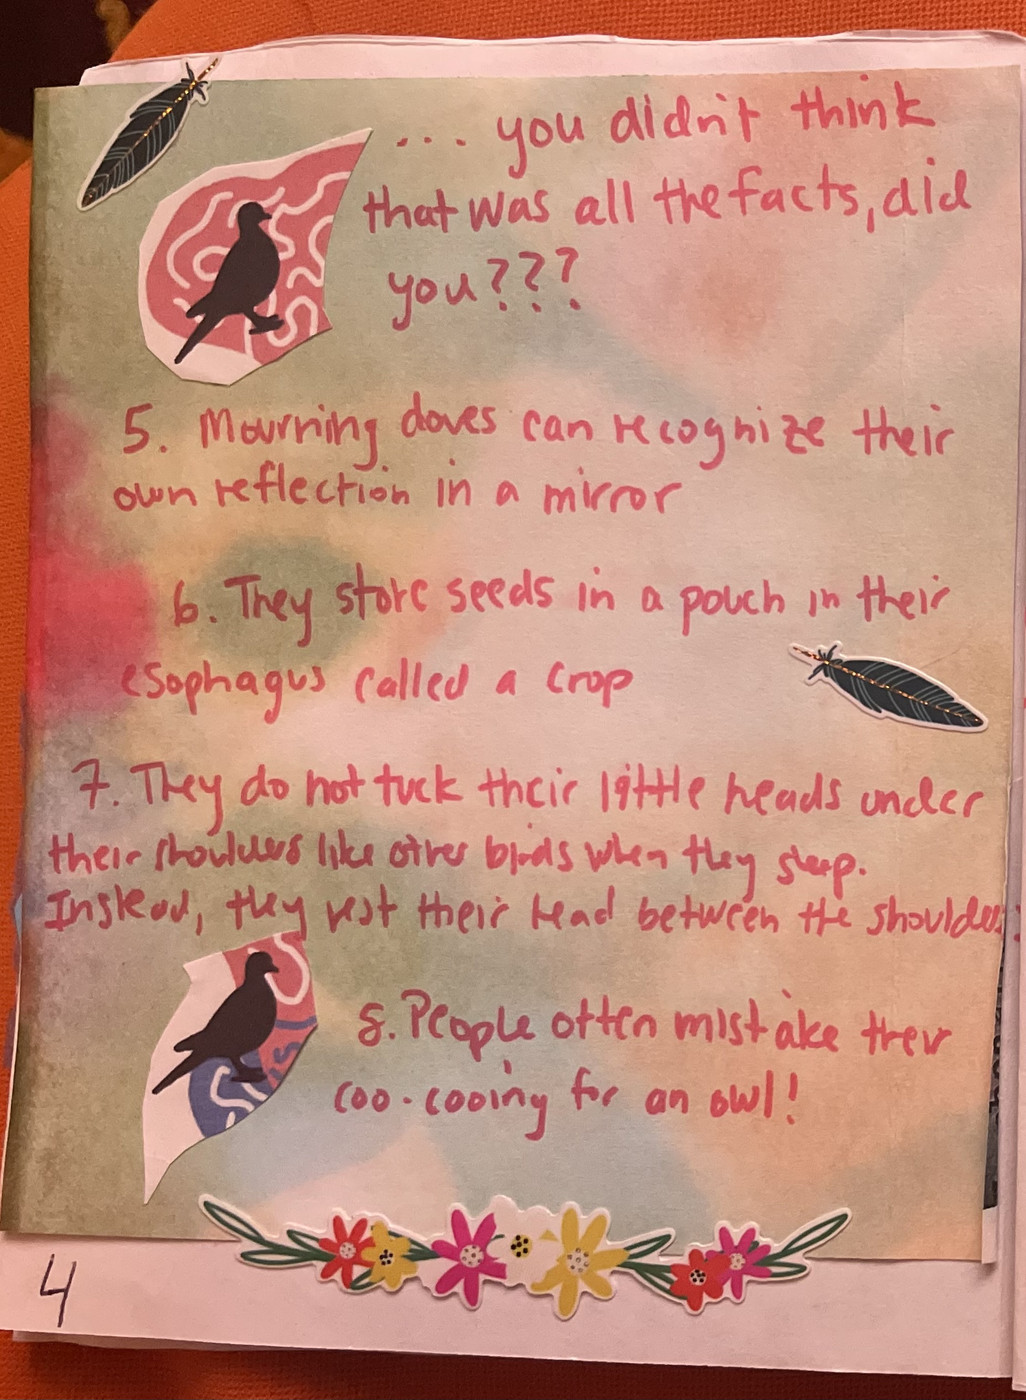 ... you didn't think
that was all the facts, did
you???
5. Mourning doves can recognize their
own reflection in a mirror
6. They store seeds in a pouch in their
esophagus called a crop
7. They do not tuck their little heads under
their shoulders like other birds when they sleep.
Instead, they rest their head between the shoulders
8. People often mistake their
coo-cooing for an owl!
4